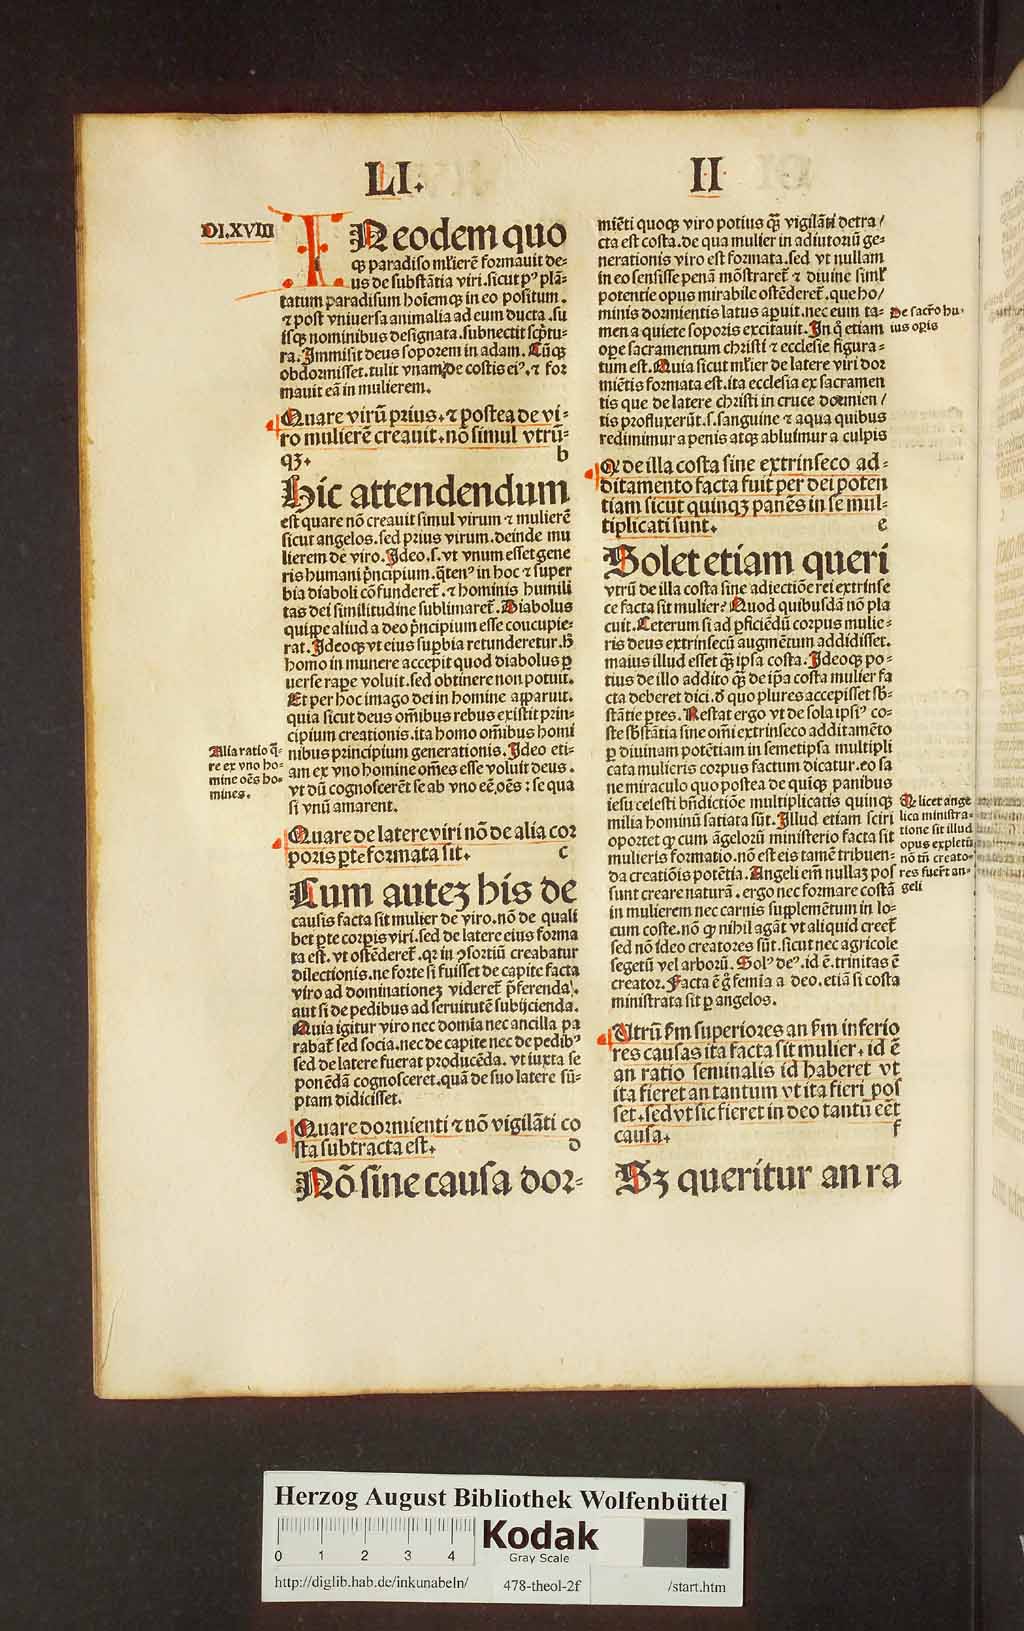 LI.
II
DI.XVIII
IN eodem quo
qꝫ paradiso mɫierē formauit de-
us de substātia viri.sicut pꝰ plā-
tatum paradisum hoīemqꝫ in eo positum.
⁊ post vniuersa animalia ad eum ducta.su
isqꝫ nominibus designata.subnectit scp̄tu-
ra.Jmmisit deus soporem in adam.Cūqꝫ
obdormisset.tulit vnam de costis eiꝰ.⁊ for
mauit eā in mulierem.
Quare virū prius.⁊ postea de vi-
ro mulierē creauit.nō simul vtrū-
qꝫ. b
Hic attendendum
est quare nō creauit simul virum ⁊ mulierē
sicut angelos.sed prius virum.deinde mu
lierem de viro.Jdeo.s.vt vnum esset gene
ris humani p̄ncipium.q̄tenꝰ in hoc ⁊ super
bia diaboli cōfunderet̄.⁊ hominis humili
tas dei similitudine sublimaret̄.Diabolus
quippe aliud a deo p̄ncipium esse coucupie-
rat.Jdeoqꝫ vt eius suꝑbia retunderetur.h̄
homo in munere accepit quod diabolus ꝑ
uerse rape voluit.sed obtinere non potuit.
Et per hoc imago dei in homine apparuit.
quia sicut deus om̄ibus rebus existit prin-
cipium creationis.ita homo om̄ibus homi
nibus principium generationis.Jdeo eti-
am ex vno homine om̄es esse voluit deus.
vt dū cognoscerēt se ab vno eē oēs : se qua
si vnū amarent.
Alia ratio q̄-
re ex vno ho-
mine oēs ho-
mines.
Quare de latere viri nō de alia cor
poris ꝑte formata sit. c
Cum auteꝫ his de
causis facta sit mulier de viro.nō de quali
bet ꝑte corpis viri.sed de latere eius forma
ta est.vt ostēderet̄.qꝛ in ꝯsortiū creabatur
dilectionis.ne forte si fuisset de capite facta
viro ad dominationeꝫ videret̄ p̄ferenda.
aut si de pedibus ad seruitutē subijcienda.
Quia igitur viro nec domīa nec ancilla pa
rabat̄ sed socia.nec de capite nec de pedibꝰ
sed de latere fuerat producēda.vt iuxta se
ponēdā cognosceret.quā de suo latere sū-
ptam didicisset.
Quare dormienti ⁊ nō vigilāti co
sta subtracta est. d
Nō sine causa dor-
miēti quoqꝫ viro potius qꝫ̄ vigilāti detra/
cta est costa.de qua mulier in adiutoriū ge-
nerationis viro est formata.sed vt nullam
in eo sensisse penā mōstraret̄ ⁊ diuine simɫ
potentie opus mirabile ostēderet̄.que ho/
minis dormientis latus aꝑuit.nec eum ta-
men a quiete soporis excitauit.Jn q̄ etiam
oꝑe sacramentum christi ⁊ ecclesie figura-
tum est.Quia sicut mɫier de latere viri dor
miētis formata est.ita ecclesia ex sacramen
tis que de latere christi in cruce dormien/
tis profluxerūt.s.sanguine ⁊ aqua quibus
redimimur a penis atqꝫ abluimur a culpis
De sacr̄o hu-
ius opis
Q de illa costa sine extrinseco ad-
ditamento facta fuit per dei poten
tiam sicut quinqꝫ panēs in se mul-
tiplicati sunt. e
Solet etiam queri
vtrū de illa costa sine adiectiōe rei extrinse
ce facta sit mulier? Quod quibusdā nō pla
cuit.Ceterum si ad ꝑficiēdū corpus mulie-
ris deus extrinsecū augmētum addidisset.
maius illud esset qꝫ̄ ipsa costa.Jdeoqꝫ po-
tius de illo addito qꝫ̄ de ip̄a costa mulier fa
cta deberet dici.d̄ quo plures accepisset sb̄-
stātie ꝑtes.Restat ergo vt de sola ipsiꝰ co-
ste sb̄stātia sine om̄i extrinseco additamēto
ꝑ diuinam potētiam in semetipsa multipli
cata mulieris corpus factum dicatur.eo sa
ne miraculo quo postea de quiqꝫ panibus
iesu celesti bn̄dictiōe multiplicatis quinqꝫ
milia hominū satiata sūt.Jllud etiam sciri
oportet ꝙ cum āgelorū ministerio facta sit
mulieris formatio.nō est eis tamē tribuen-
da creatiōis potētia.Angeli em̄ nullaꝫ pos
sunt creare naturā.ergo nec formare costā
in mulierem nec carnis supplemētum in lo-
cum coste.nō ꝙ nihil agāt vt aliquid creet̄
sed nō ideo creatores sūt.sicut nec agricole
segetū vel arborū.Solꝰ deꝰ.id ē.trinitas ē
creator.Facta ē ḡ femia a deo.etiā si costa
ministrata sit ꝑ angelos.
Q licet ange
lica ministra-
tione sit illud
opus expletū
nō tn̄ creato-
res fuer̄t an-
geli
Utrū ẜm superiores an ẜm inferio
res causas ita facta sit mulier.id ē
an ratio seminalis id haberet vt
ita fieret an tantum vt ita fieri pos
set.sed vt sic fieret in deo tantū eēt
causa. f
Sꝫ queritur an ra
Herzog August Bibliothek Wolfenbüttel
0 1 2 3 4
Kodak
Gray Scale
http://diglib.hab.de/inkunabeln/ 478-theol-2f /start.htm